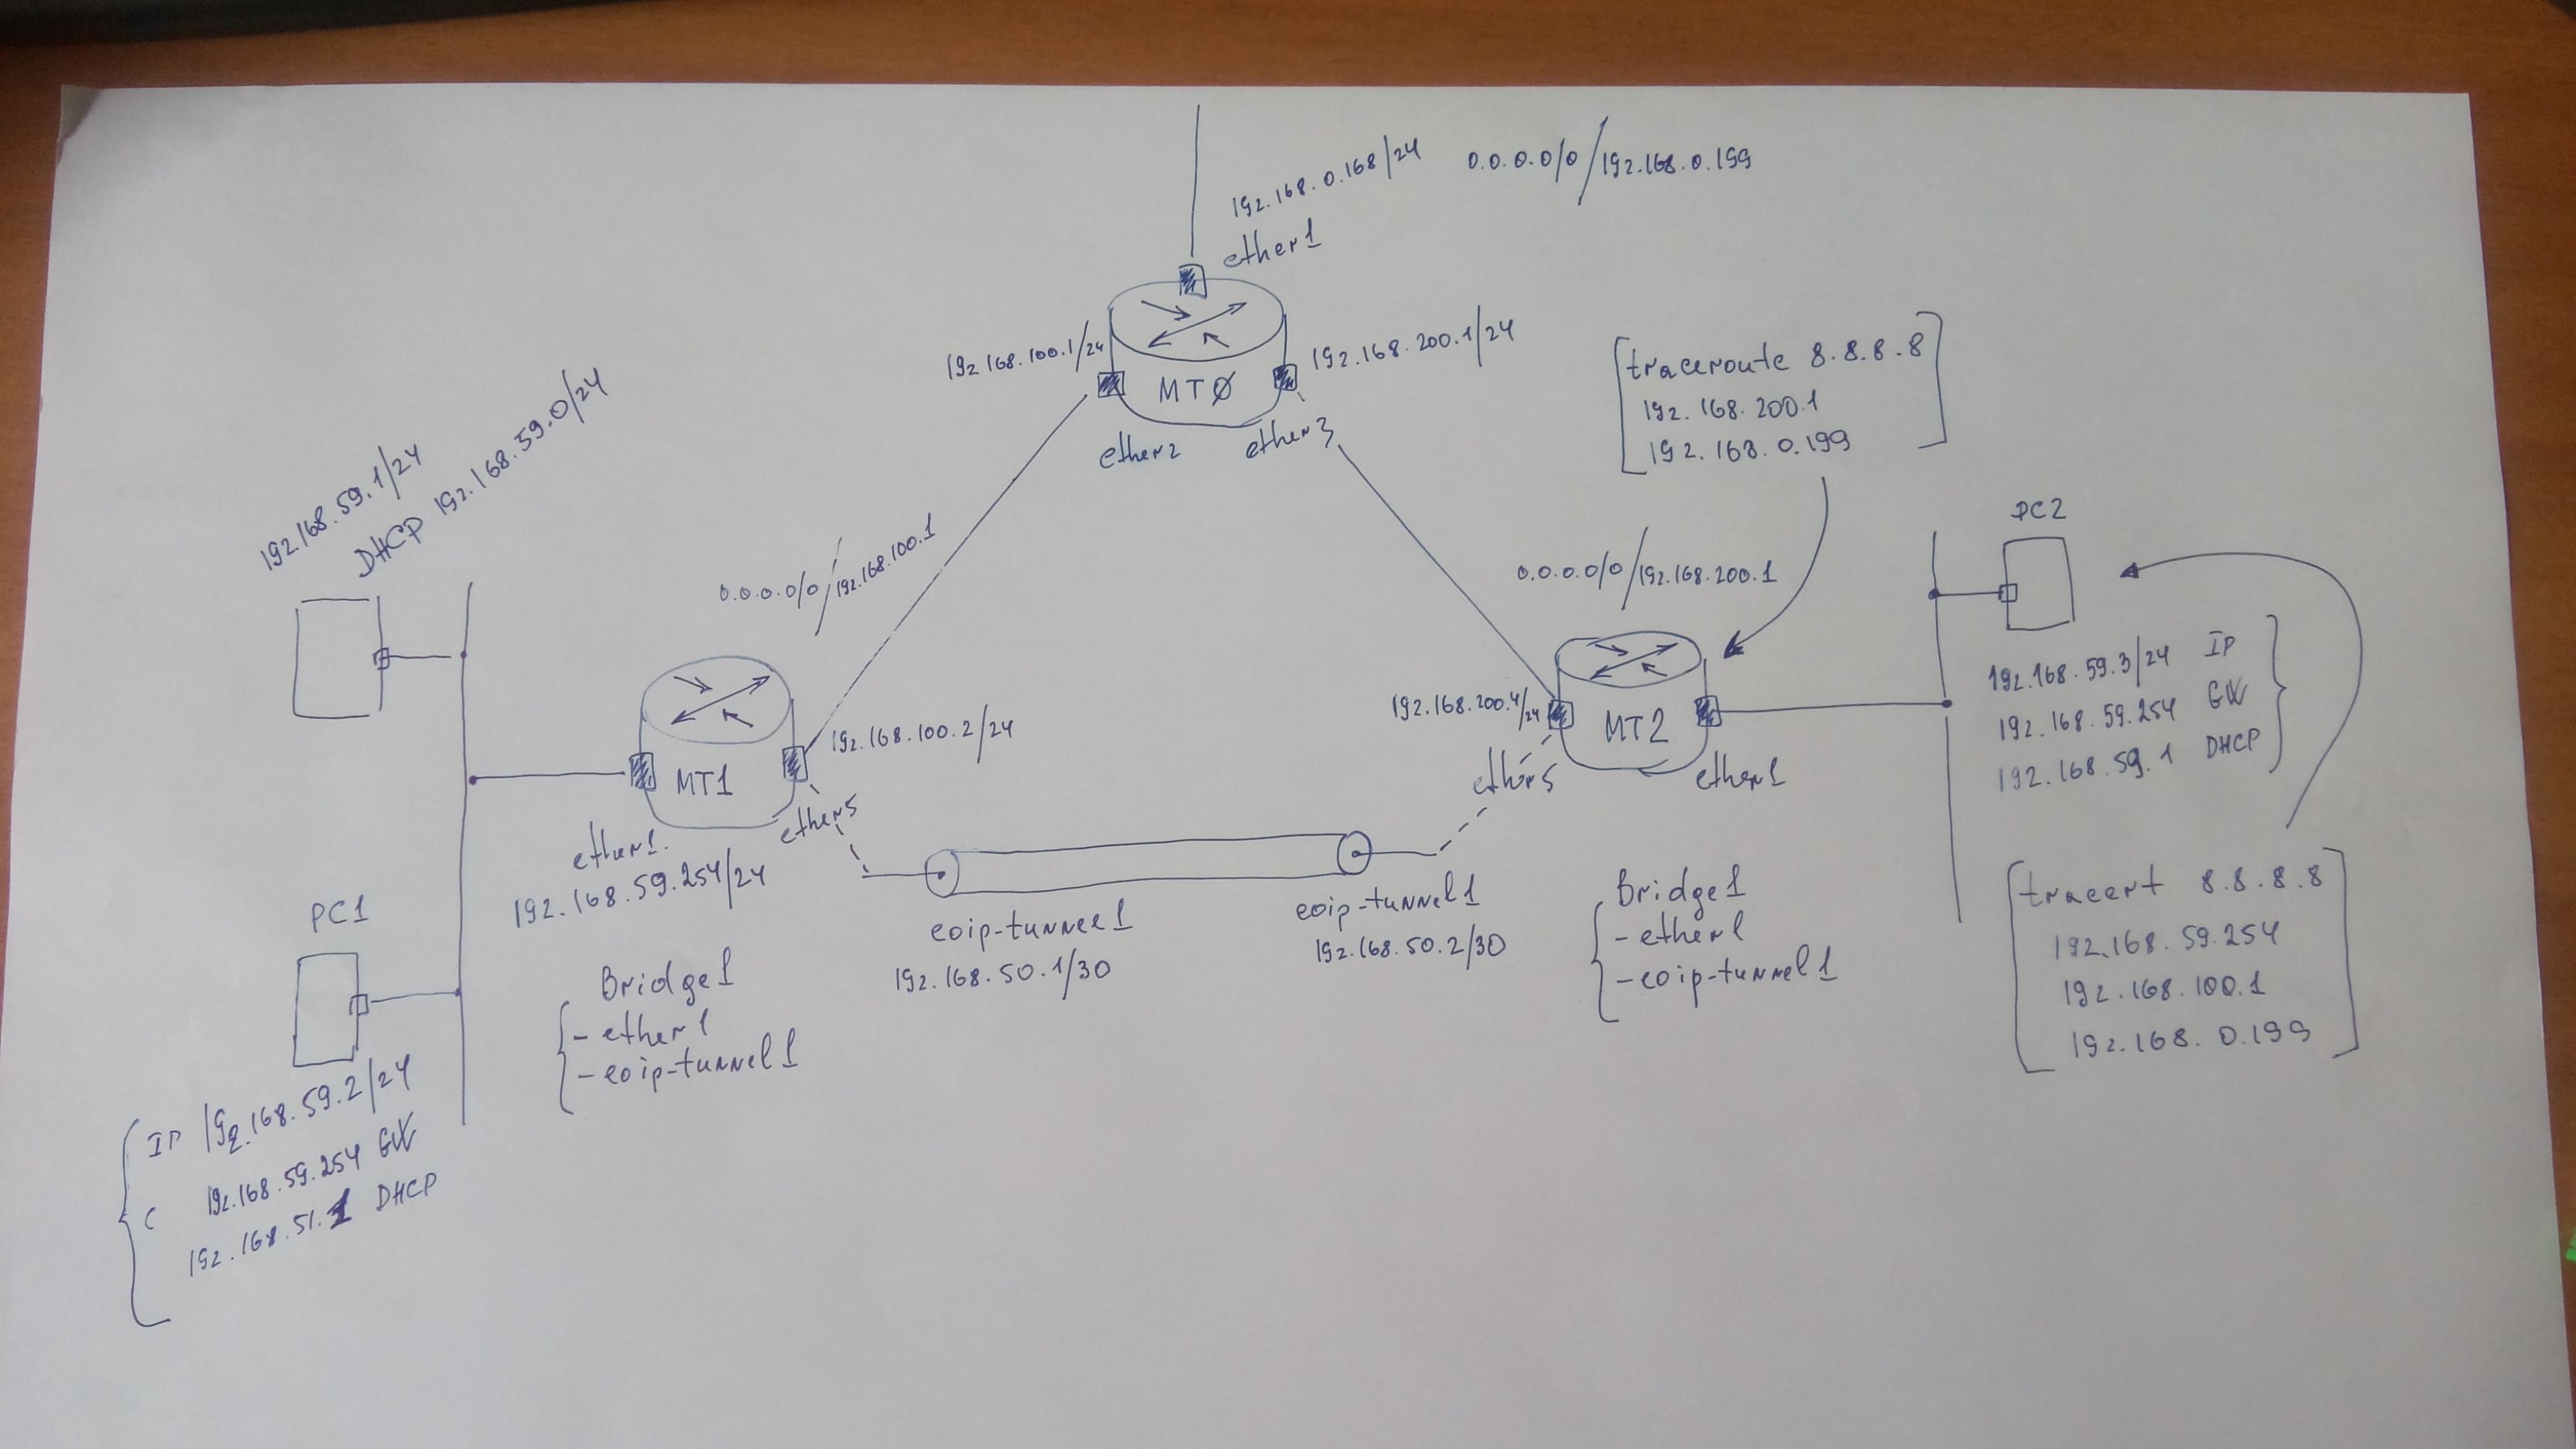 192.168.0.168/24
0.0.0.0/0/192.168.0.199
ether1
192.168.100.1/24
192.168.200.1/24
MTØ
ether2
ether3
[traceroute 8.8.8.8
192.168.200.1
192.168.0.199]
192.168.59.1/24
DHCP 192.168.59.0/24
0.0.0.0/0/192.168.100.1
0.0.0.0/0/192.168.200.1
PC2
192.168.59.3/24 IP
192.168.59.254 GW
192.168.59.1 DHCP
192.168.100.2/24
192.168.200.4/24
MT1
MT2
ether1
192.168.59.254/24
ether5
ether5
ether1
eoip-tunnel1
192.168.50.1/30
eoip-tunnel1
192.168.50.2/30
Bridge1
- ether1
- eoip-tunnel1
Bridge1
- ether1
- eoip-tunnel1
[tracert 8.8.8.8
192.168.59.254
192.168.100.1
192.168.0.199]
PC1
IP 192.168.59.2/24
192.168.59.254 GW
192.168.51.1 DHCP